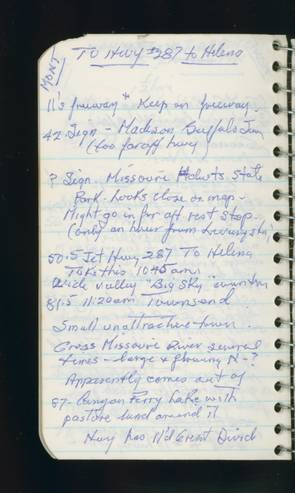 MONT
TO Hwy #287 to Helena
11's freeway & Keep on freeway.
42 Sign - Madison Buffalo Jum
(too far off hwy)
? Sign. Missouri Hdwts. State
Park - Looks close on map -
Might go in for aft rest stop.
(only an hour from
50.5 Jct Hwy 287 To Helena
Take this 10:45am
Wide valley "Big Sky" country
81.5 11:20am Townsend.
Small unattractive town.
Cross Missouri River several
times - large & flowing N-?
Apparently comes out of
87- Canyon Ferry Lake with
pasture land around it
Hwy has N'd Great Divid